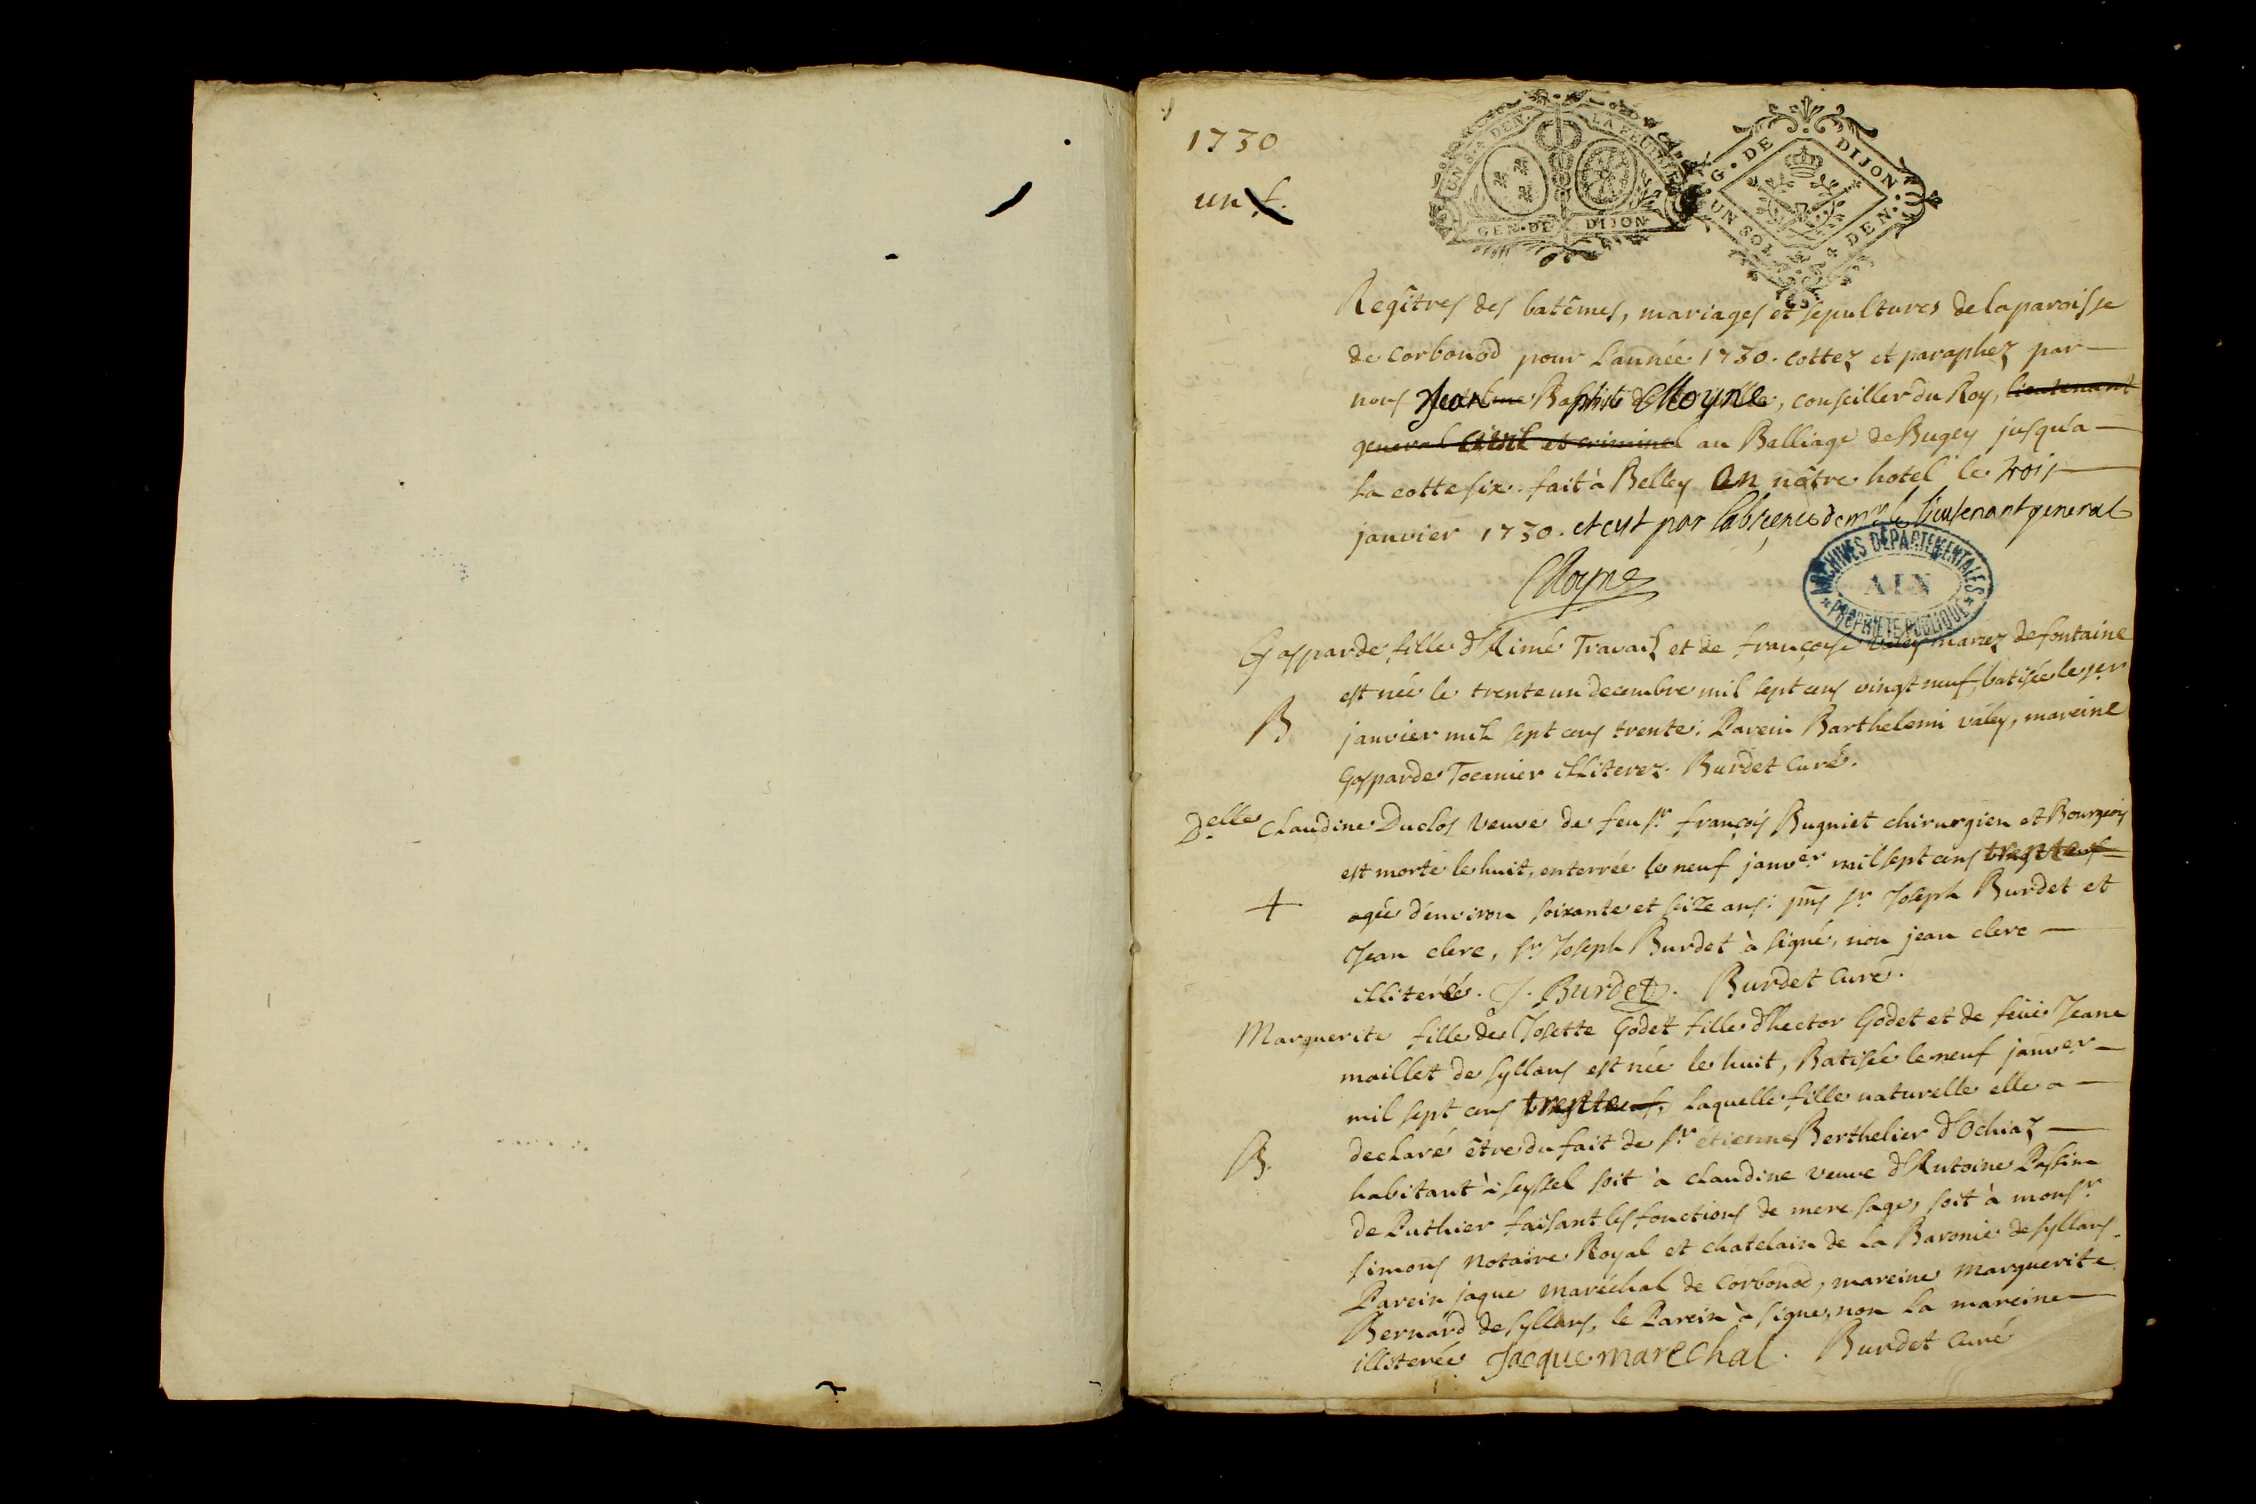 1730
un f.
UN S. 8 DEN. LA FEUILLE
GEN. DE DIJON
G. DE DIJON
UN SOL DEN.
Regîtres des batêmes, mariages et sepultures de la paroisse
de Corbonod pour l'année 1730. cottez et paraphez par
nous Jean Baptiste Moyne, conseiller du Roy, lieutenant
general civil et criminel au Balliage de Bugey jusqu'a
la cotte six. fait à Belley en nôtre hotel le trois
janvier 1730. et cut par l'absence de mr le lieutenant general
Moyne
ARCHIVES DÉPARTEMENTALES
AIN
PROPRIÉTÉ PUBLIQUE
Gasparde fille d'Aimé Travail et de françoise valey mariez de fontaine
est née le trente un decembre mil sept cens vingt neuf, batisée le per
B janvier mil sept cens trente: Parein Barthelemi valey, mareine
Gasparde Tocanier illiterez. Burdet Curé.
Delle Claudine Duclos veuve de feu sr. françois Bugniet chirurgien et Bourgeois
est morte le huit, enterrée le neuf janver mil sept cens trente
+ agée d'environ soixante et seize ans: pns sr Joseph Burdet et
Jean clerc, sr Joseph Burdet à signé, non jean clerc
illiteré. J. Burdet. Burdet Curé.
Marguerite fille de Josette Godet fille d'hector Godet et de feüe Jeane
maillet de syllans est née le huit, Batisée le neuf janver
mil sept cens trente, laquelle fille naturelle elle a
B. declaré être du fait de sr étienne Berthelier d'Ochiaz
habitant à seyssel soit à claudine veuve d'Antoine Passin
de Puthier faisant les fonctions de mere sage, soit à monsr
simons Notaire Royal et chatelain de la Baronie de syllans.
Parein jaque maréchal de Corbonod, mareine Marguerite
Bernard de syllans, le Parein à signe, non la mareine
illiterée Jacque marechal. Burdet Curé